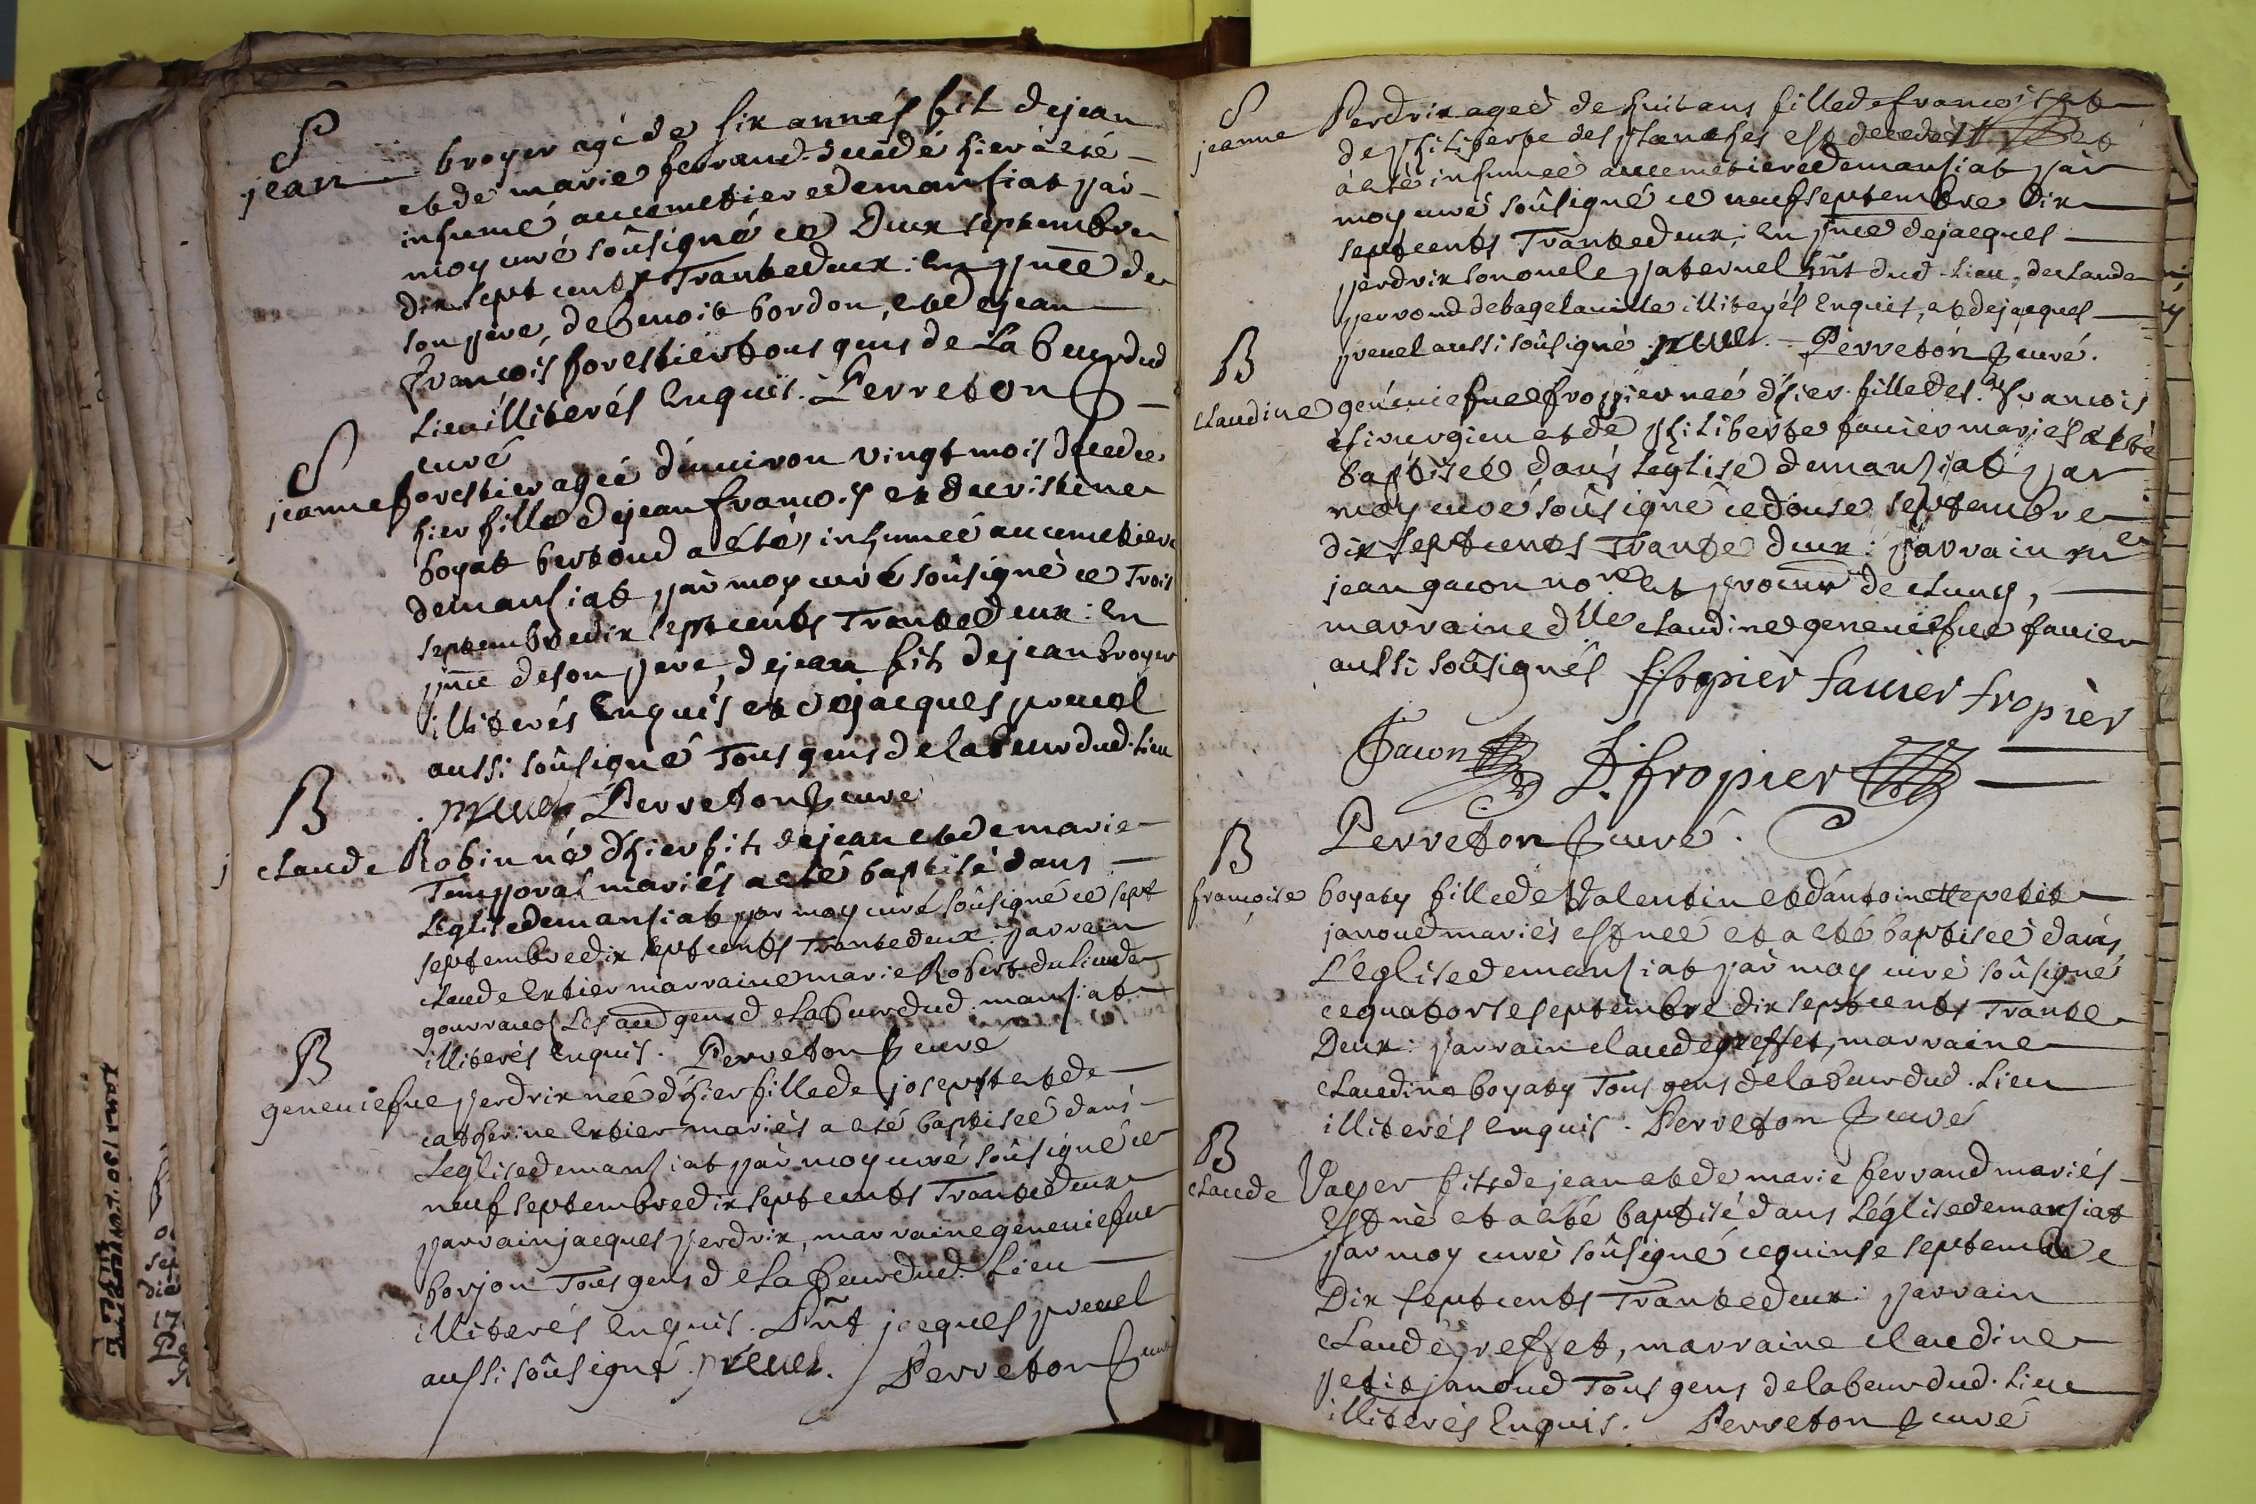 S
jean broyer agé de six anneés fils de jean
et de marie ferrand decedé hier à eté
inhumé au cemetiere de mansiat par
moy curé soûsigné ce deux septembre
dix sept cents Trante deux: en pnce de
son pere, de benoit bordon, et de jean
françois forestier tous gens de labeur dud
lieu illiterés Enquis. Perreton
curé
S
jeanne forestier ageé d'environ vingt mois decedeé
hier fille de jean françois et de cristine
boyat bertoud a eté inhumeé au cemetiere
de mansiat par moy curé soûsigné ce Trois
septembre dix sept cents Trante deux: En
pnce de son pere, de jean fils de jean broyer
illiterés Enquis et de jacques preuel
aussi soûsigné Tous gens de labeur dud. lieu
preuel Perreton curé
B
claude Robin né d'hier fils de jean et de marie
Temporal mariés a eté baptisé dans
L'eglise de mansiat par moy curé soûsigné ce sept
septembre dix sept cents Trante deux: parrain
claude Extier marraine marie Robert du lieu de
les gens de labeur dud. mansiat
illiterés Enquis. Perreton curé
B
geneuiefue perdrix neé d'hier fille de joseph et de
catherine Extier mariés a eté baptiseé dans
L'eglise de mansiat par moy curé soûsigné ce
neuf septembre dix sept cents Trante deux
parrain jacques perdrix, marraine geneuiefue
borjon Tous gens de labeur dud. Lieu
illiterés Enquis. Pnt jacques preuel
aussi soûsigné. preuel. Perreton curé
S
jeanne Perdrix ageé de huit ans fille de francois et
de philiberte des planches est decedeé et
à eté inhumeé au cemetiere de mansiat par
moy curé soûsigné ce neuf septembre dix
sept cents Trante deux: En pnce de jacques
perdrix son oncle paternel dud. Lieu, de claude
perroud de bagelauille illiterés Enquis, et de jacques
preuel aussi soûsigné. preuel. Perreton curé.
B
claudine geneuiefue fropier neé d'hier fille de s.r françois
chirurgien et de philiberte fauier mariés a eté
baptiseé dans L'eglise de mansiat par
moy curé soûsigné ce douse septembre
dix sept cents Trante deux: parrain me
jean gacon no.re et procur de cluny,
marraine d.lle claudine geneuiefue fauier
aussi soûsignés fropier fauier fropièr
Gacon fropier
Perreton curé.
B
françoise boyaty fille de Valentin et d'antoinette petit
janoud mariés est neé et a eté baptiseé dans
L'eglise de mansiat par moy curé soûsigné
ce quatorse septembre dix sept cents Trante
Deux: parrain claude greffet, marraine
claudine boyaty Tous gens de labeur dud. Lieu
illiterés Enquis. Perreton curé
B
claude Vayer fils de jean et de marie ferrand mariés
Est né et a eté baptisé dans L'églisé de mansiat
par moy curé soûsigné ce quinse septembre
Dix sept cents Trante deux: parrain
claude greffet, marraine claudine
petit janoud Tous gens de labeur dud. Lieu
illiterés Enquis. Perreton curé